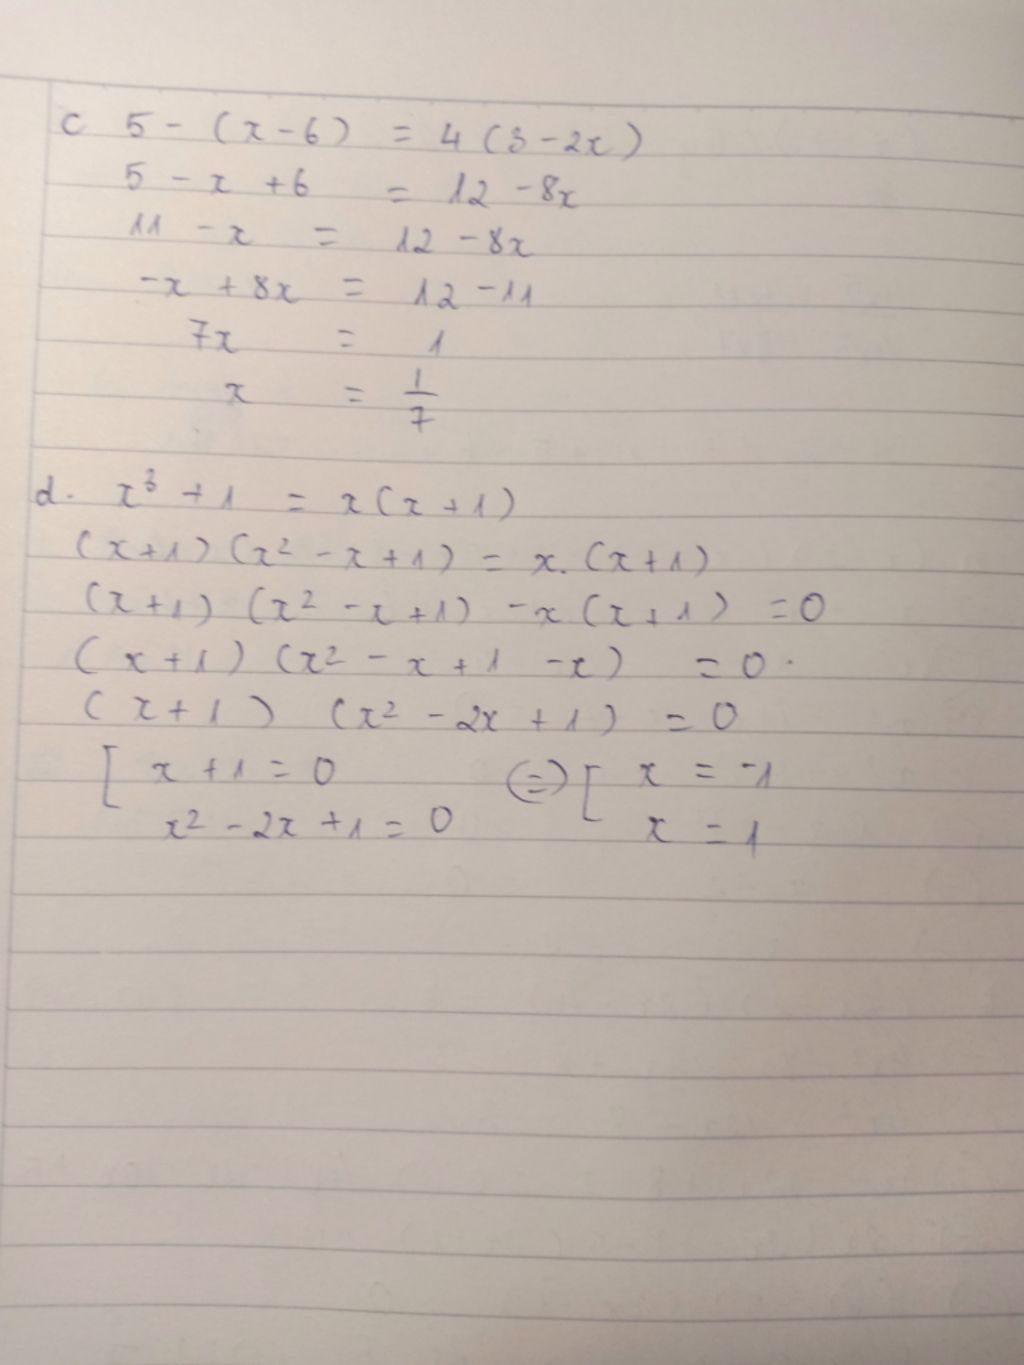 c 5 - (x - 6) = 4 (3 - 2x)
5 - x + 6 = 12 - 8x
11 - x = 12 - 8x
-x + 8x = 12 - 11
7x = 1
x = 1/7
d. x³ + 1 = x(x + 1)
(x+1) (x² - x + 1) = x. (x+1)
(x+1) (x² - x + 1) - x (x + 1) = 0
(x+1) (x² - x + 1 - x) = 0.
(x+1) (x² - 2x + 1) = 0
[ x + 1 = 0 (=) [ x = -1
x² - 2x + 1 = 0 x = 1